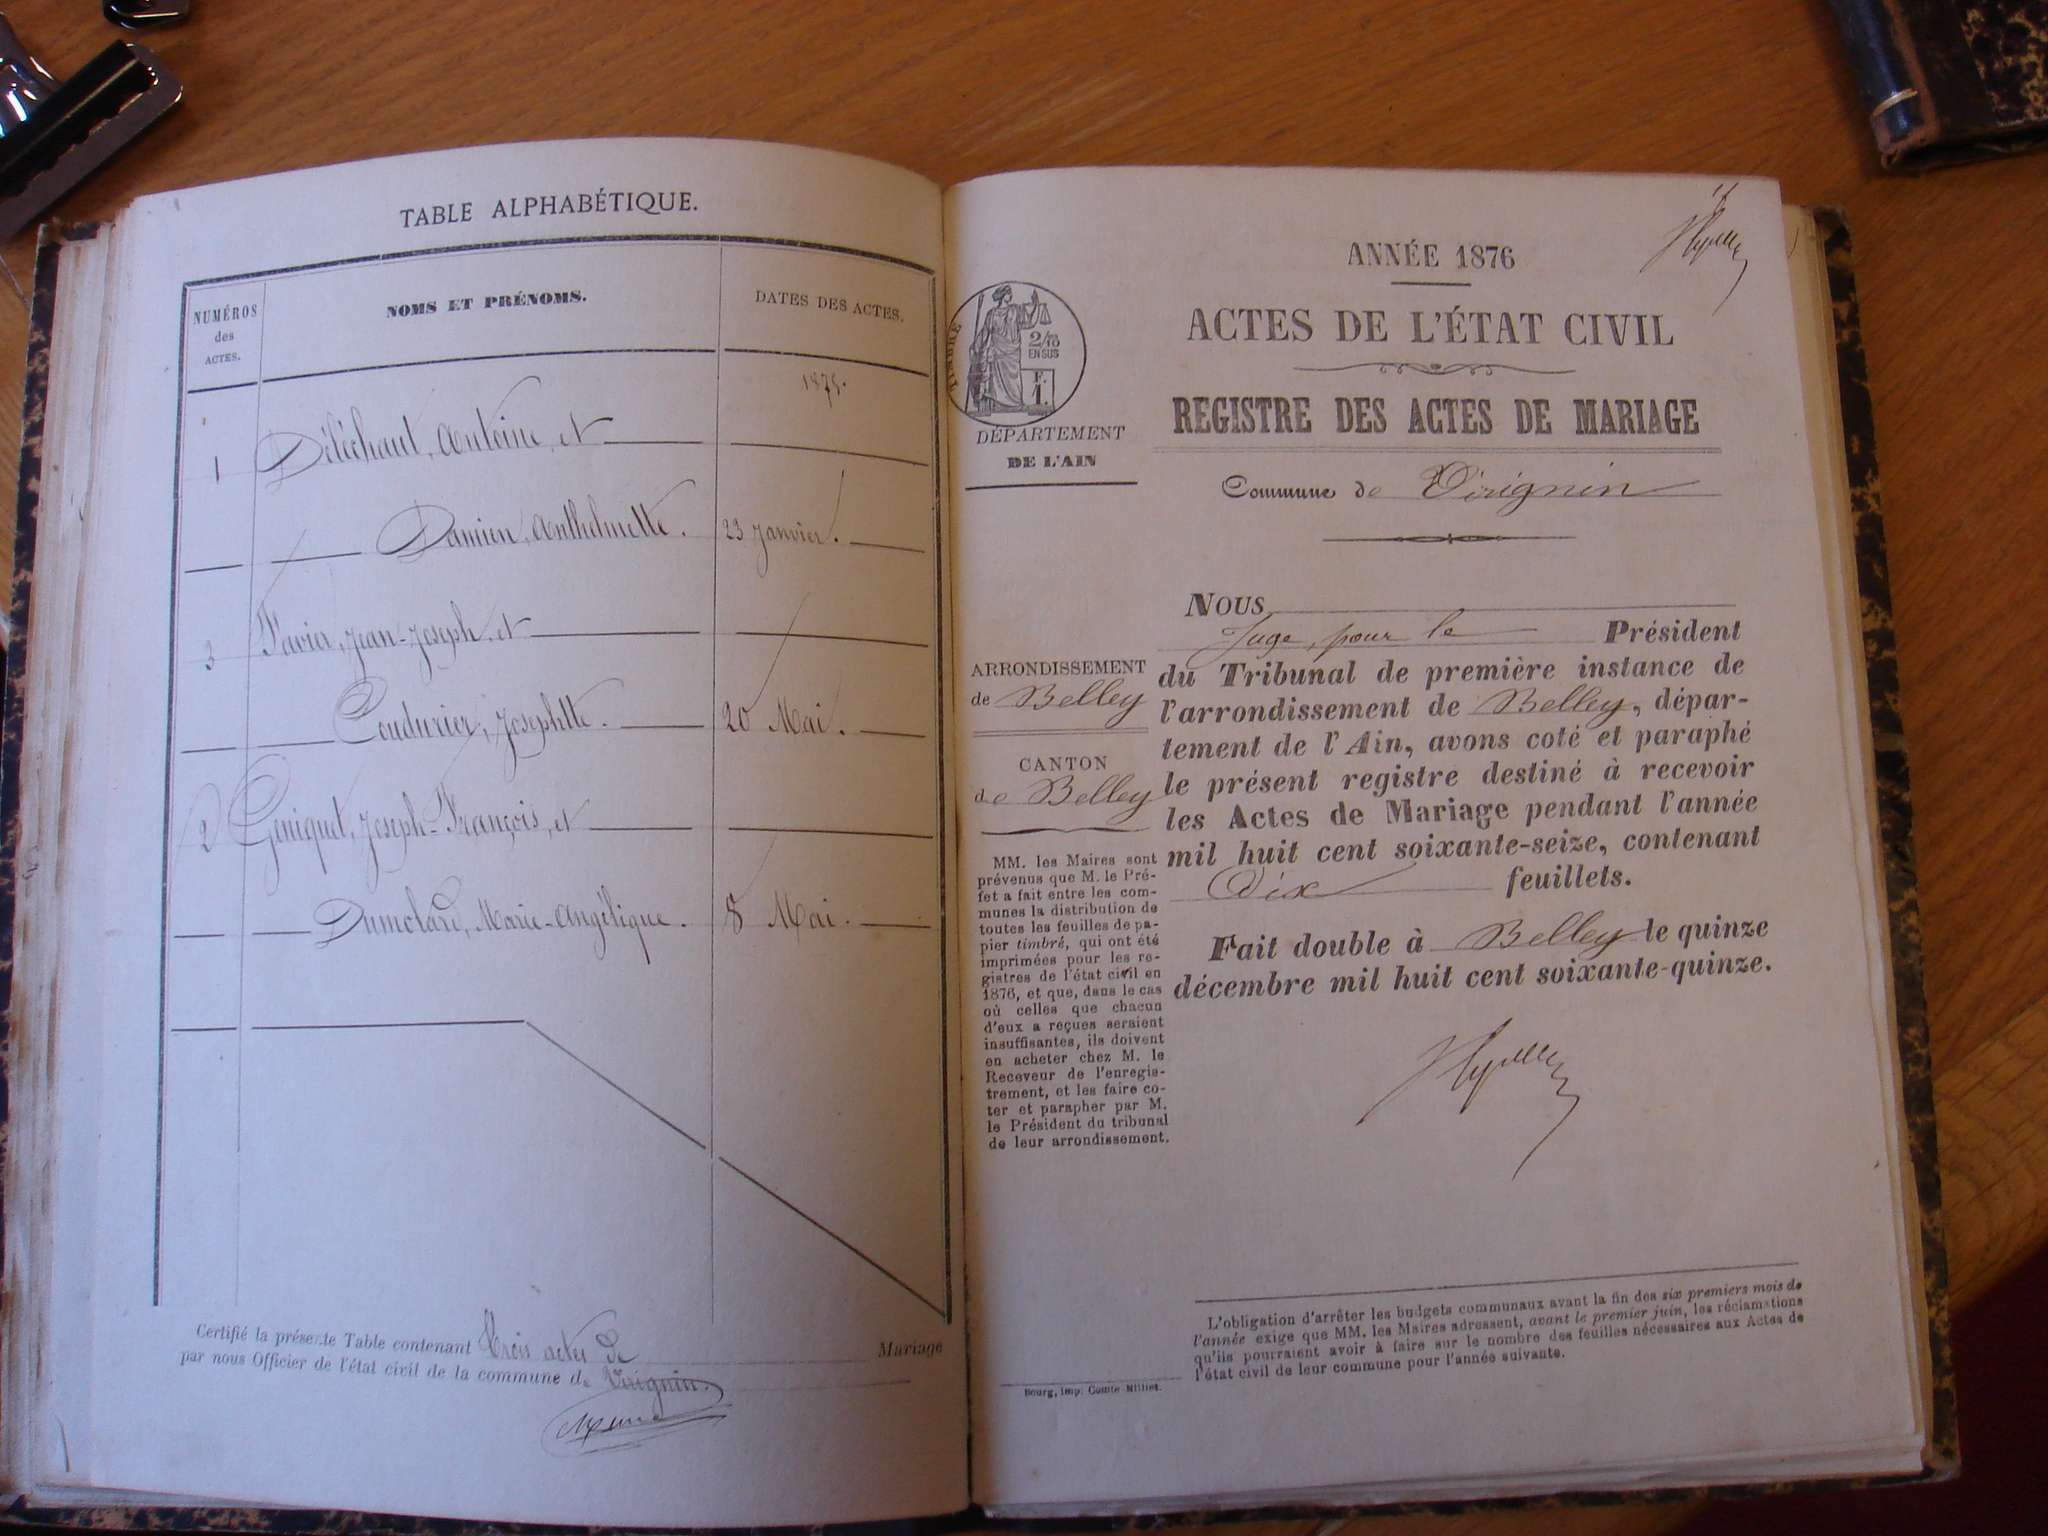 TABLE ALPHABÉTIQUE.
NUMÉROS
des
ACTES.
NOMS ET PRÉNOMS.
DATES DES ACTES.
1875.
1 Déléchaut, Antoine, et
Damien, Anthelmette. 23 Janvier.
3 Favier, Jean-Joseph, et
Coudurier, Josephtte. 20 Mai.
2 Geniquet, Joseph-François, et
Dumolard, Marie-Angélique. 8 Mai.
Certifié la présente Table contenant trois actes de Mariage
par nous Officier de l'état civil de la commune de Virignin.
ANNÉE 1876
ACTES DE L'ÉTAT CIVIL
REGISTRE DES ACTES DE MARIAGE
TIMBRE
2/10
EN SUS
F.
1.
DÉPARTEMENT
DE L'AIN
Commune de Virignin
ARRONDISSEMENT
de Belley
CANTON
de Belley
MM. les Maires sont
prévenus que M. le Pré-
fet a fait entre les com-
munes la distribution de
toutes les feuilles de pa-
pier timbré, qui ont été
imprimées pour les re-
gistres de l'état civil en
1876, et que, dans le cas
où celles que chacun
d'eux a reçues seraient
insuffisantes, ils doivent
en acheter chez M. le
Receveur de l'enregis-
trement, et les faire co-
ter et parapher par M.
le Président du tribunal
de leur arrondissement.
NOUS
Juge, pour le Président
du Tribunal de première instance de
l'arrondissement de Belley, dépar-
tement de l'Ain, avons coté et paraphé
le présent registre destiné à recevoir
les Actes de Mariage pendant l'année
mil huit cent soixante-seize, contenant
Dix feuillets.
Fait double à Belley le quinze
décembre mil huit cent soixante-quinze.
L'obligation d'arrêter les budgets communaux avant la fin des six premiers mois de
l'année exige que MM. les Maires adressent, avant le premier juin, les réclamations
qu'ils pourraient avoir à faire sur le nombre des feuilles nécessaires aux Actes de
l'état civil de leur commune pour l'année suivante.
Bourg, imp. Comte-Milliet.